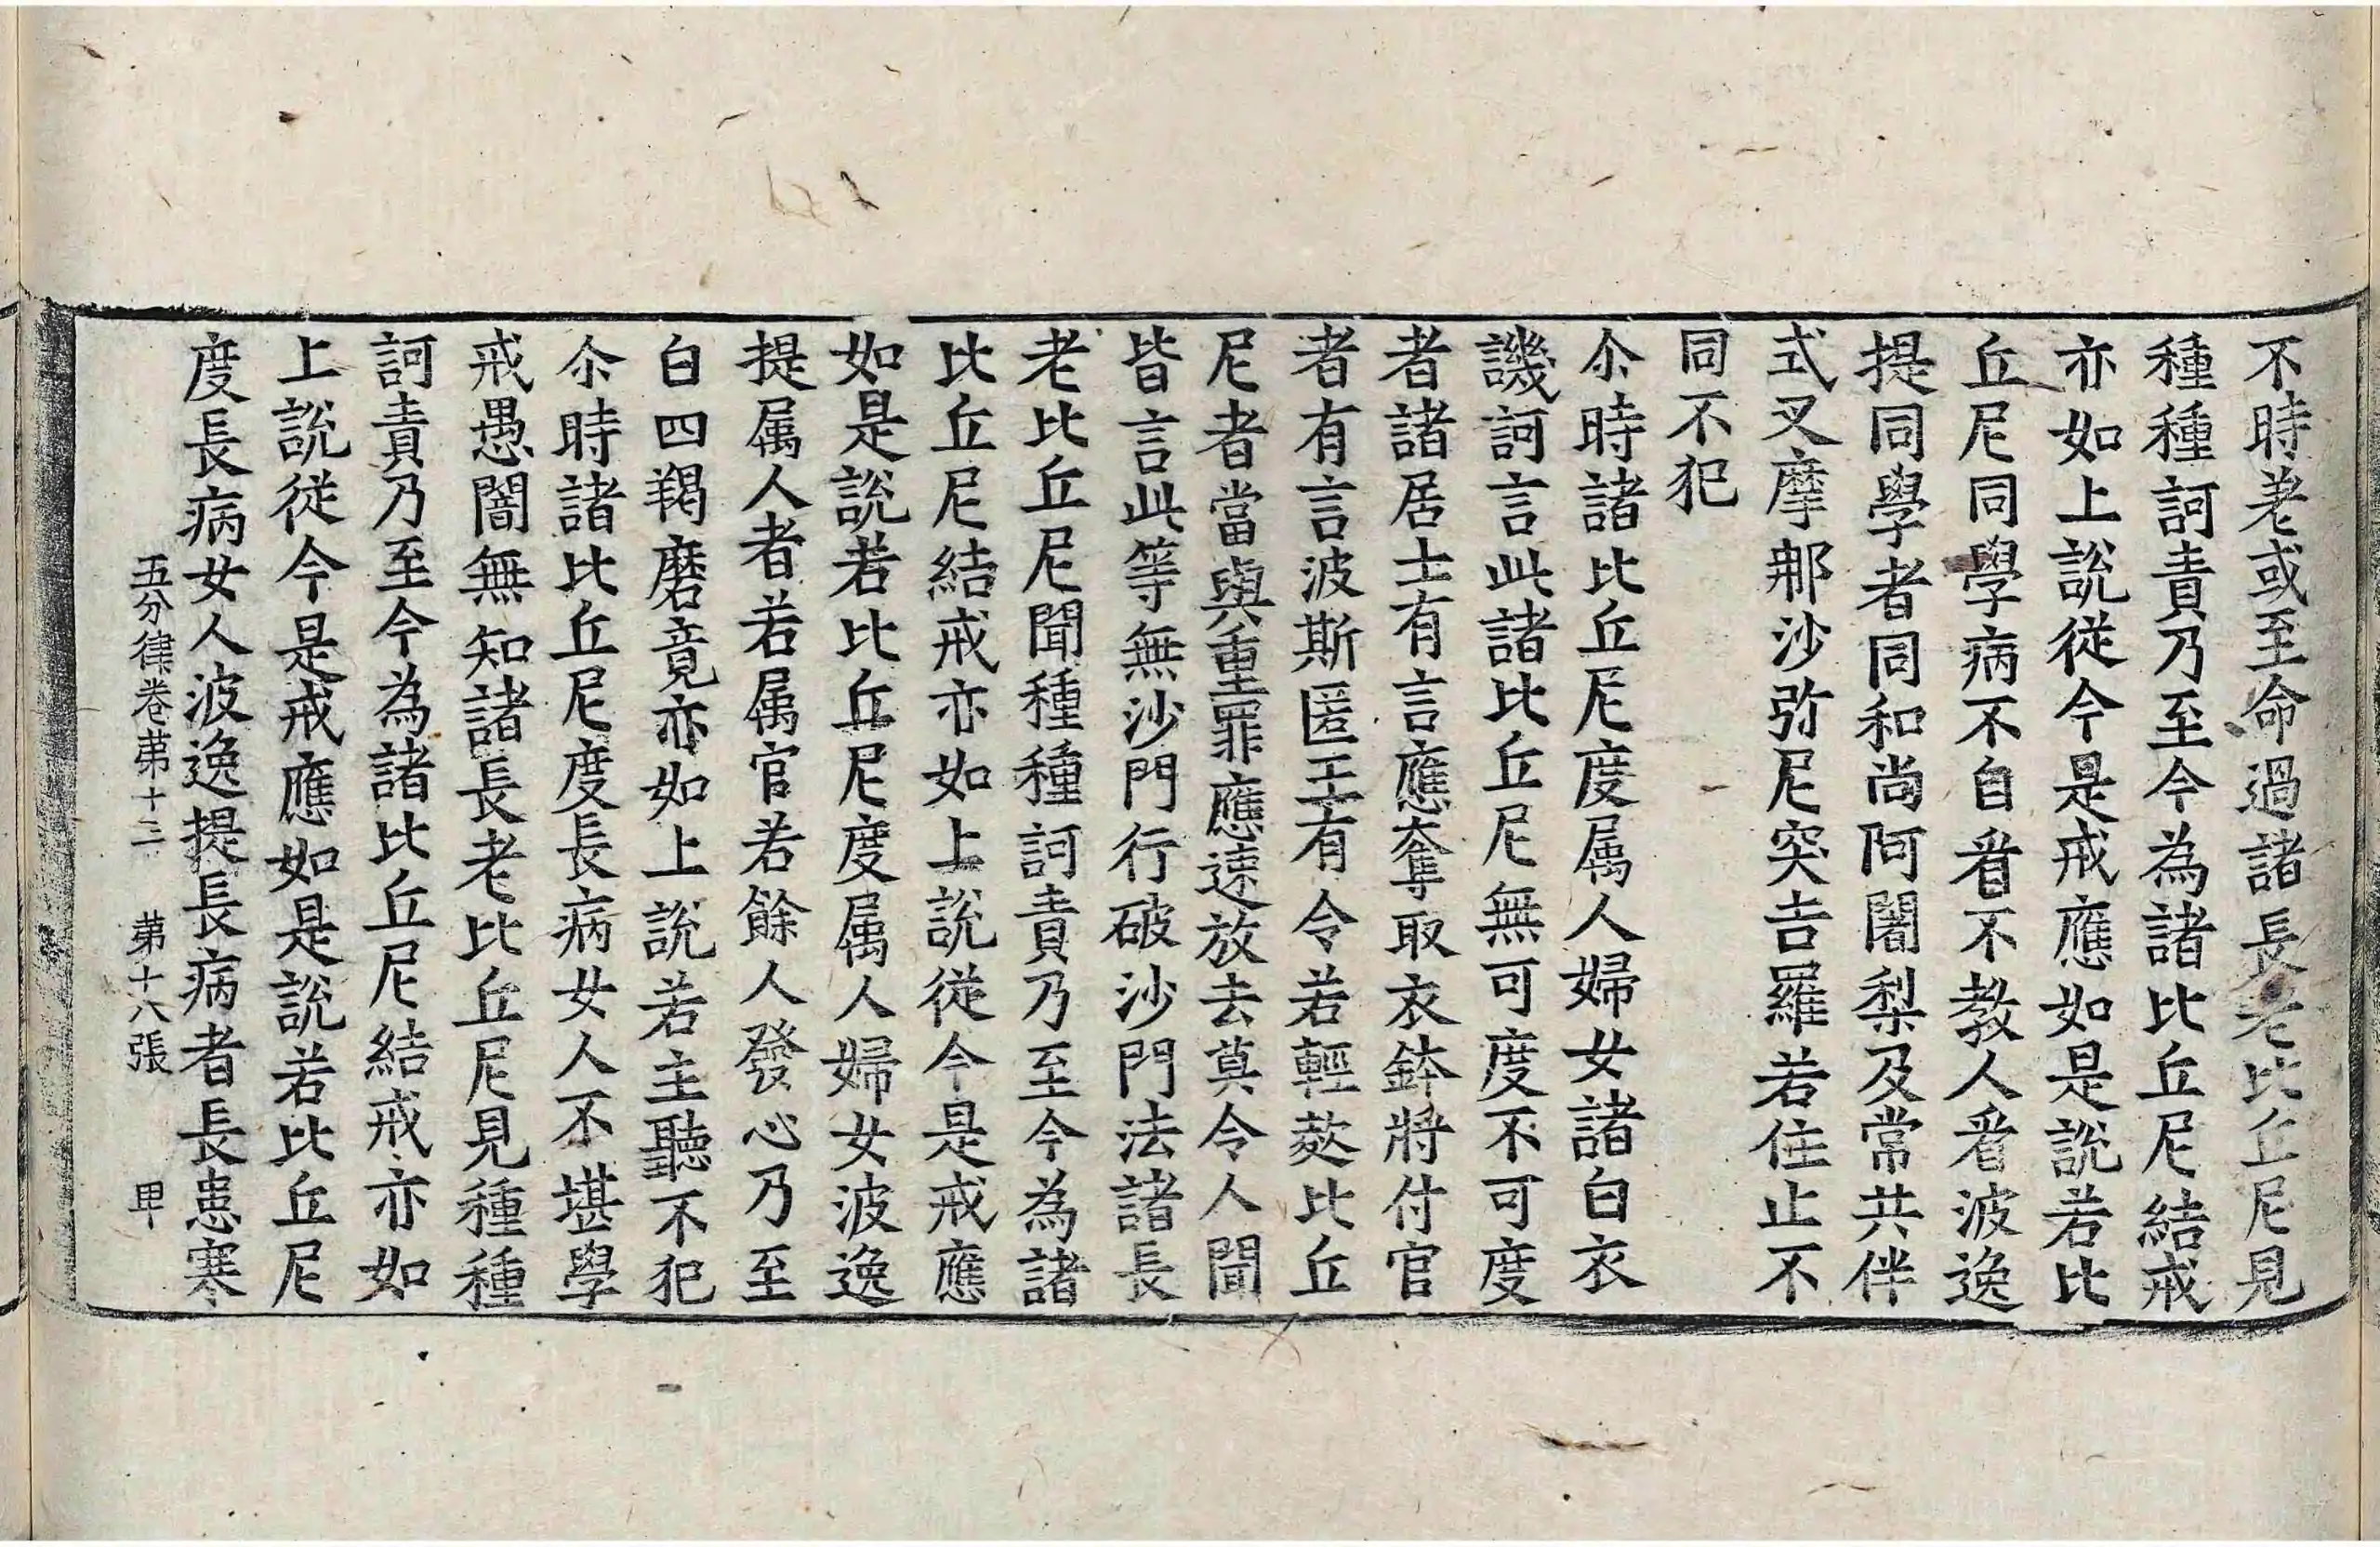 不時差或至命過諸長老比丘尼見
種種訶責乃至今為諸比丘尼結戒
亦如上說從今是戒應如是說若比
丘尼同學病不自看不教人看波逸
提同學者同和尚阿闍梨及常共伴
式叉摩那沙弥尼突吉羅若住止不
同不犯
尒時諸比丘尼度属人婦女諸白衣
譏訶言此諸比丘尼無可度不可度
者諸居士有言應奪取衣鉢將付官
者有言波斯匿王有令若輕𢾾比丘
尼者當與重罪應速放去莫令人聞
皆言此等無沙門行破沙門法諸長
老比丘尼聞種種訶責乃至今為諸
比丘尼結戒亦如上說從今是戒應
如是說若比丘尼度属人婦女波逸
提属人者若属官若餘人發心乃至
白四羯磨竟亦如上說若主聽不犯
尒時諸比丘尼度長病女人不堪學
戒愚闇無知諸長老比丘尼見種種
訶責乃至今為諸比丘尼結戒亦如
上說從今是戒應如是說若比丘尼
度長病女人波逸提長病者長患寒
五分律卷苐十三 苐十六張 甲